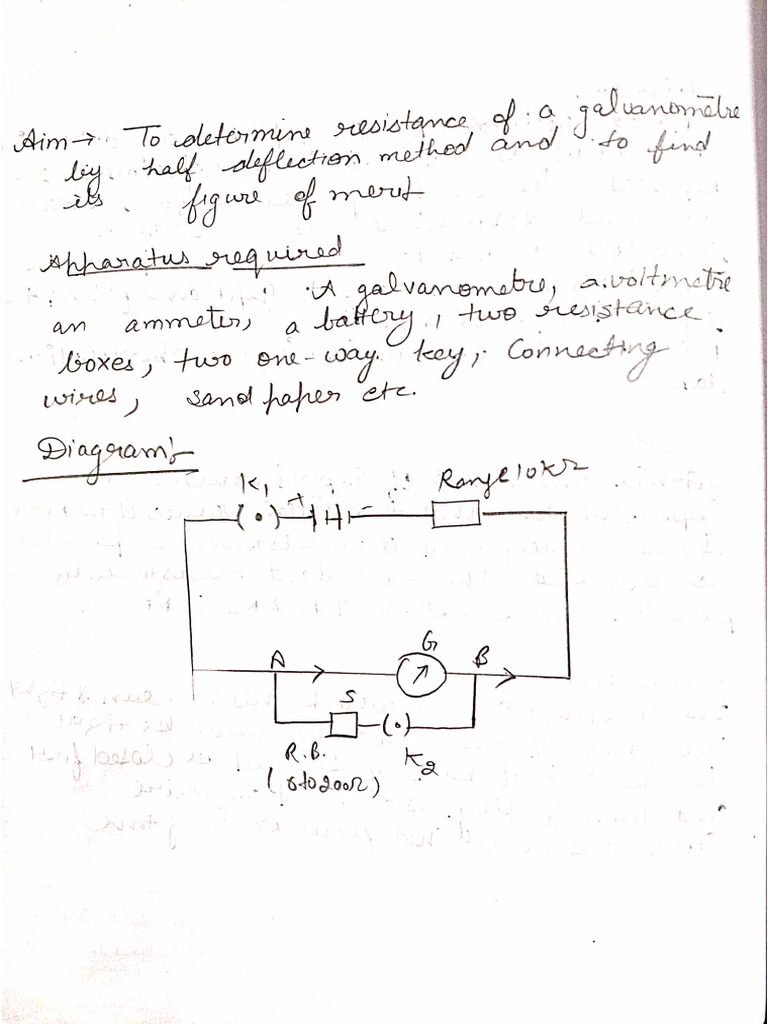 Aim → To determine resistance of a galvanometre
by half deflection method and to find
its figure of merit
Apparatus required
A galvanometre, a voltmetre
an ammeter, a battery, two resistance
boxes, two one-way key, Connecting
wires, sand paper etc.
Diagram:-
K1
+
-
Range 10KΩ
A
G
B
S
R.B.
(0 to 200Ω)
K2